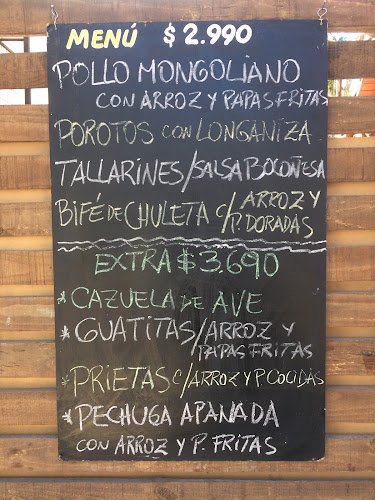 MENÚ $2.990
POLLO MONGOLIANO
CON ARROZ Y PAPAS FRITAS
POROTOS CON LONGANIZA
TALLARINES/SALSA BOLOÑESA
BIFÉ DE CHULETA C/ ARROZ Y
P. DORADAS
EXTRA $3.690
* CAZUELA DE AVE
* GUATITAS/ARROZ Y
PAPAS FRITAS
* PRIETAS C/ARROZ Y P COCIDAS
* PECHUGA APANADA
CON ARROZ Y P. FRITAS